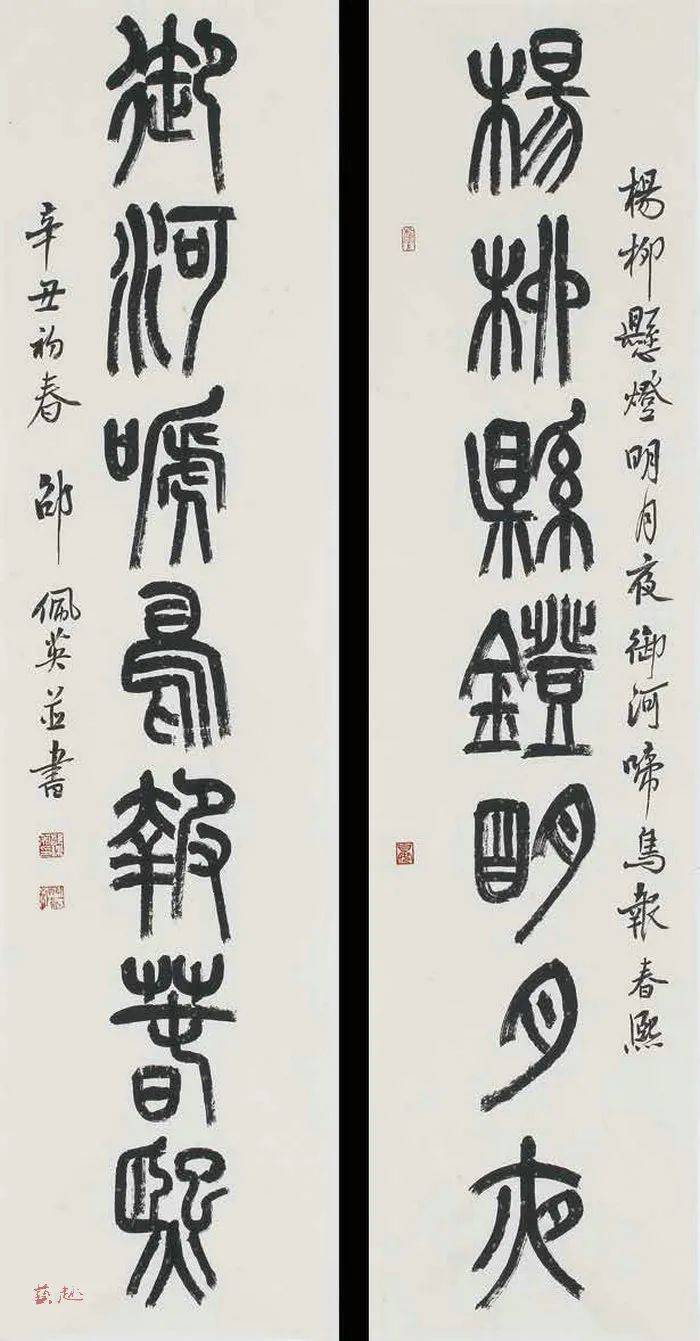 楊柳懸燈明月夜御河啼鳥報春熙
楊柳縣鐙明月夜
御河嗁鳥報春熙
辛丑初春 邵佩英並書
藝趣